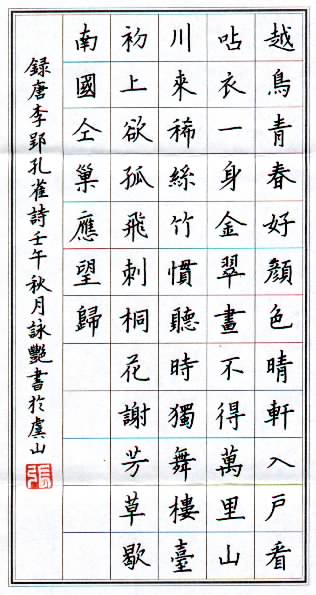 越鳥青春好顔色晴軒入戶看
呫衣一身金翠畫不得萬里山
川來稀絲竹慣聽時獨舞樓臺
初上欲孤飛刺桐花謝芳草歇
南國仝巢應望歸
録唐李郢孔雀詩壬午秋月詠艷書於虞山
張